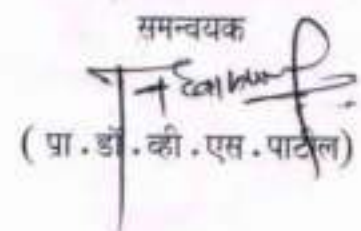 समन्वयक
( प्रा . डॉ . व्ही . एस . पाटील)